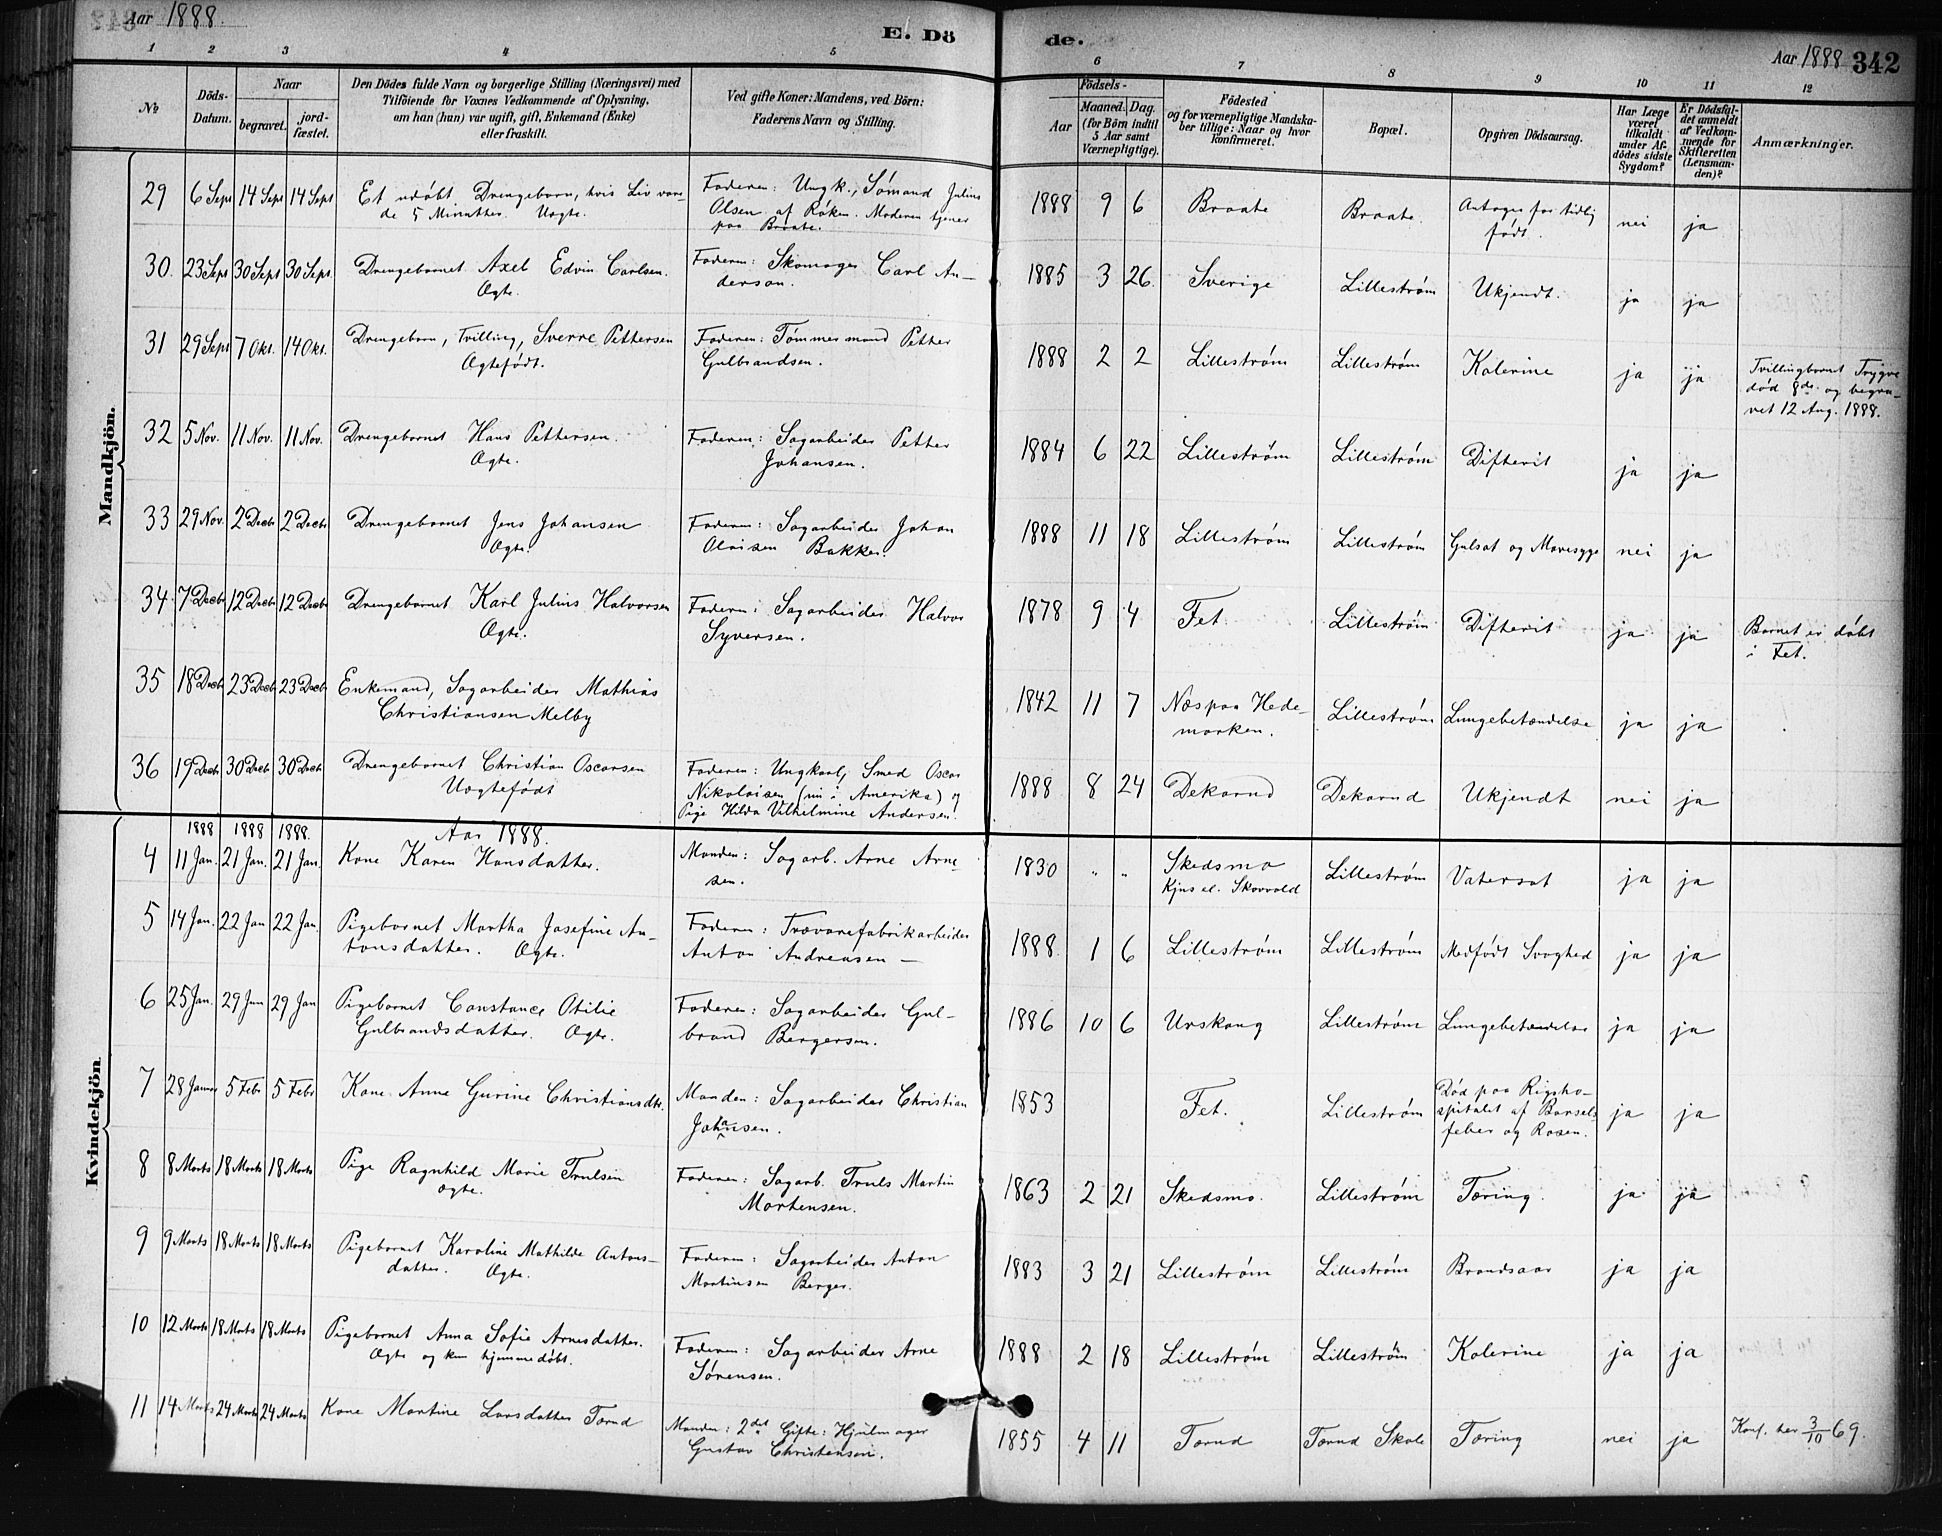 Aar 1888. E. Dö de. Aar 1888 342
1 2 3 4 5 6 7 8 9 10 11 12
№ Döds-Datum. Naar begravet. jordfæstet. Den Dödes fulde Navn og borgerlige Stilling (Næringsvei) med Tilföiende for Voxnes Vedkommende af Oplysning, om han (hun) var ugift, gift, Enkemand (Enke) eller fraskilt. Ved gifte Koner: Mandens, ved Börn: Faderens Navn og Stilling. Födsels- Aar Maaned. Dag. (for Börn indtil 5 Aar samt Værnepligtige). Födested og for værnepligtige Mandskaber tillige: Naar og hvor konfirmeret. Bopæl. Opgiven Dödsaarsag. Har Læge været tilkaldt under Afdödes sidste Sygdom? Er Dödsfaldet anmeldt af Vedkommende for Skifteretten (Lensmanden)? Anmærkninger.
Mandkjön.
29 6 Sept 14 Sept 14 Sept Et udøbt Drengebarn, hvis Liv varede 5 Minutter. Uægte. Faderen: Ungk., Sømand Julius Olsen af Røken. Moderen tjener paa Braate. 1888 9 6 Braate Braate. Antages for tidlig født. nei ja
30. 23 Sept 30 Sept 30 Sept. Drengebarnet Axel Edvin Carlsen. Ægte. Faderen: Skomager Carl Anderson. 1885 3 26. Sverige Lillestrøm Ukjendt. ja ja
31 29 Sept 7 Okt. 14 Okt. Drengebarn, Tvilling, Sverre Pettersen Ægtefødt. Faderen: Tømmermand Petter Gulbrandsen. 1888 2 2 Lillestrøm Lillestrøm Kolerine ja ja Tvillingbarnet Trygve død 8de. og begravet 12 Aug. 1888.
32 5 Nov. 11 Nov. 11 Nov. Drengebarnet Hans Pettersen. Ægte. Faderen: Sagarbeider Petter Johansen. 1884 6 22 Lillestrøm Lillestrøm Difterit ja ja
33 29 Nov. 2 Decbr 2 Decbr Drengebarnet Jens Johansen Ægte. Faderen: Sagarbeider Johan Olaisen Bakken. 1888 11 18 Lillestrøm Lillestrøm Gulsot og Mavesyge nei ja
34. 7 Decbr 12 Decbr 12 Decbr Drengebarnet Karl Julius Halvorsen Ægte. Faderen: Sagarbeider Halvor Syversen. 1878 9 4 Fet Lillestrøm Difterit ja ja Barnet er døbt i Fet.
35 18 Decbr 23 Decbr 23 Decbr Enkemand, Sagarbeider Mathias Christiansen Melby 1842 11 7 Næs paa Hedemarken. Lillestrøm Lungebetændelse ja ja
36 19 Decbr 30 Decbr 30 Decbr Drengebarnet Christian Oscarsen Uægtefødt Faderen: Ungkarl, Smed Oscar Nikolaisen (nu i Amerika) og Pige Hilda Vilhelmine Andersen. 1888 8 24 Dekarud Dekarud Ukjendt nei ja
Kvindekjön
1888 1888 1888. Aar 1888.
4 11 Jan. 21 Jan. 21 Jan. Kone Karen Hansdatter. Manden: Sagarb. Arne Arnesen. 1830 " " Skedsmo Kjus el. Skovvold Lillestrøm Vatersot ja ja
5 14 Jan. 22 Jan 22 Jan. Pigebarnet Martha Josefine Antonsdatter. Ægte. Faderen: Trævarefabrikarbeider Anton Andreasen — 1888 1 6 Lillestrøm Lillestrøm Medfødt Svaghed ja ja
6 25 Jan. 29 Jan 29 Jan Pigebarnet Constance Otilie Gulbrandsdatter. Ægte. Faderen: Sagarbeider Gulbrand Bergersen. 1886 10 6 Urskoug Lillestrøm Lungebetændelse ja ja
7 28 Januar 5 Febr 5 Febr Kone Anne Gurine Christiansdtr. Manden: Sagarbeider Christian Johansen. 1853 Fet. Lillestrøm Død paa Rigshospitalet af Barselsfeber og Rosen. ja ja
8 8 Marts 18 Marts 18 Marts Pige Ragnhild Marie Trulsen ægte. Faderen: Sagarb. Truls Martin Mortensen. 1863 2 21 Skedsmo. Lillestrøm Tæring. ja ja
9 9 Marts 18 Marts 18 Marts Pigebarnet Karoline Mathilde Antonsdatter. Ægte. Faderen: Sagarbeider Anton Martinsen Berger. 1883 3 21 Lillestrøm Lillestrøm Brandsaar ja ja
10 12 Marts 18 Marts 18 Marts Pigebarnet Anna Sofie Arnesdatter. Ægte og kun hjemmedøbt. Faderen: Sagarbeider Arne Sørensen. 1888 2 18 Lillestrøm Lillestrøm Kolerine ja ja
11 14 Marts 24 Marts 24 Marts Kone Martine Larsdatter Tærud Manden: 2det Gifte: Hjulmager Gustav Christensen. 1855 4 11 Tærud Tærud Skole Tæring nei ja Konf. her 3/10 69.